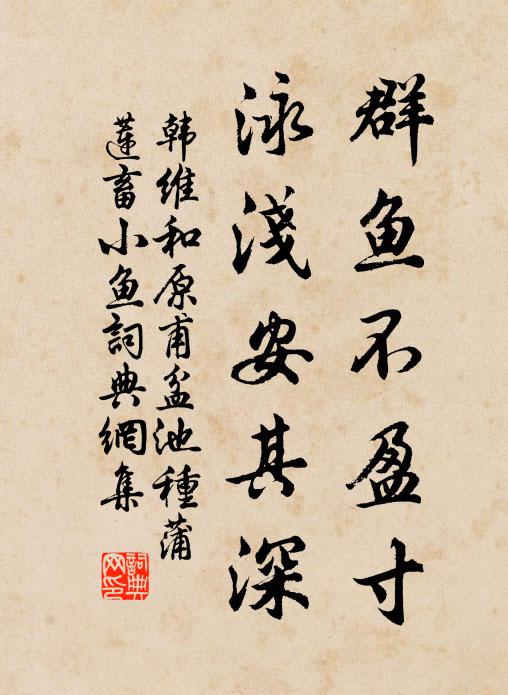 群鱼不盈寸
泳淺安其深
韩維和原甫盆池種蒲
蓮畜小鱼詞典網集
詞典
网印